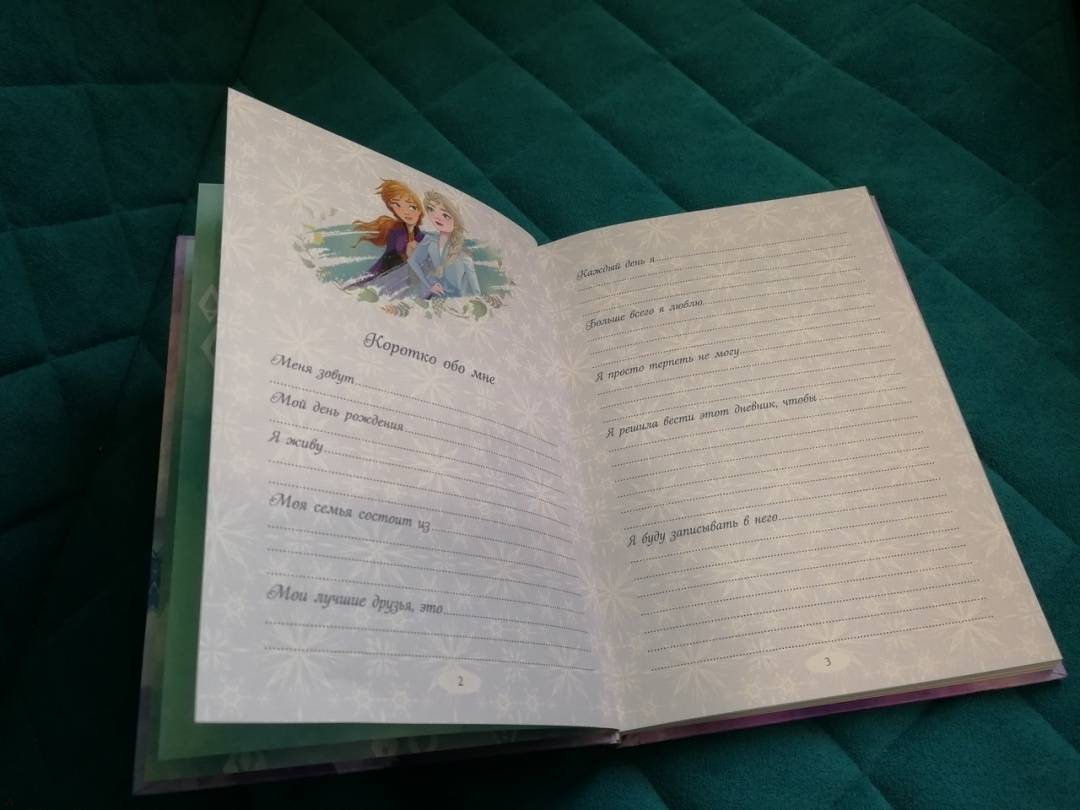 Коротко обо мне
Меня зовут
Мой день рождения
Я живу
Моя семья состоит из
Мои лучшие друзья, это
2
Каждый день я
Больше всего я люблю
Я просто терпеть не могу
Я решила вести этот дневник, чтобы
Я буду записывать в него
3